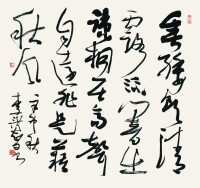 垂緌飲清
露流響出
疏桐居高聲
自遠非是藉
秋風